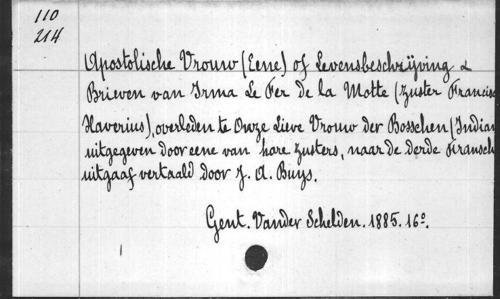 110
214
Apostolische Vrouw (Eene) of Levensbeschrijving &
Brieven van Irma Le Fer de la Motte (Zuster Francisc
Haverius), overleden te Onze Lieve Vrouw der Bosschen (Indian
uitgegeven door eene van hare zusters, naar de derde Fransch
uitgaaf vertaald door J. A. Buys.
Gent. Vander Schelden. 1885. 16º.